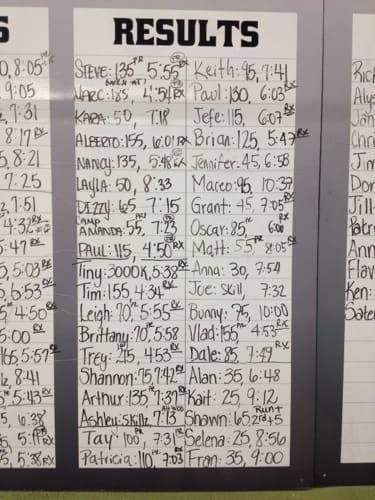 RESULTS
S
0, 8:05
9:05
7:31
8:17 RX
5, 8:21
7:25
7:51
4:32
5:47 RX
5, 5:03 RX
5, 6:53 RX
4:50 RX
5:00 RX
165, 5:57
8:41
5:43 RX
5, 6:38
5:11
5, 5:38 RX
STEVE: 135 PR 5:55
MARC: 185, 4:54 RX
KARA: 50 7:18
ALBERTO: 155, 6:01 RX
NANCY: 135, 5:48 RX
LAYLA: 50, 8:33
DIZZY: 65 7:15
CAMP AMANDA: 55, 7:23
PAUL: 115, 4:50 RX
Tiny: 3000K, 5:38 RX
Tim: 155, 4:34 RX
Leigh: 70, 5:55 RX
Brittany: 70, 5:58
Trey: 4:53 RX
Shannon: 75, 7:42 RX
Arthur: 135 7:37 RX
Ashley: Skillz, 7:13
Tay 100 PR, 7:31
Patricia: 110, 7:03 RX
Keith: 95, 7:41
Paul: 130, 6:03 RX
Jefe: 115, 6:07 RX
Brian: 125, 5:47 RX
Jennifer: 45, 6:58
Marco: 95, 10:37
Grant: 45, 7:05 RX
Oscar: 85 PR 6:00 RX
Matt: 55 PR 8:05 RX
Anna: 30, 7:54
Joe: Skill, 7:32
Bunny: 75, 10:00
Vlad: 155 PR 4:53 RX
Dale: 85, 7:49 RX
Alan: 35, 6:48
Kait: 25, 9:12
Shawn: 65, 2rd + 5 Run +
Selena: 25, 8:56
Fran: 35, 9:00
Ric
Alys
Jan
Chri
Jim
Don
Jill
Patr
Ann
Flav
Ken:
Sate